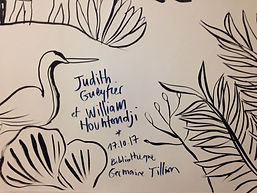 Judith
Gueyfier
et William
Hountondji
*
17.10.17
Bibliothèque
Germaine Tillion